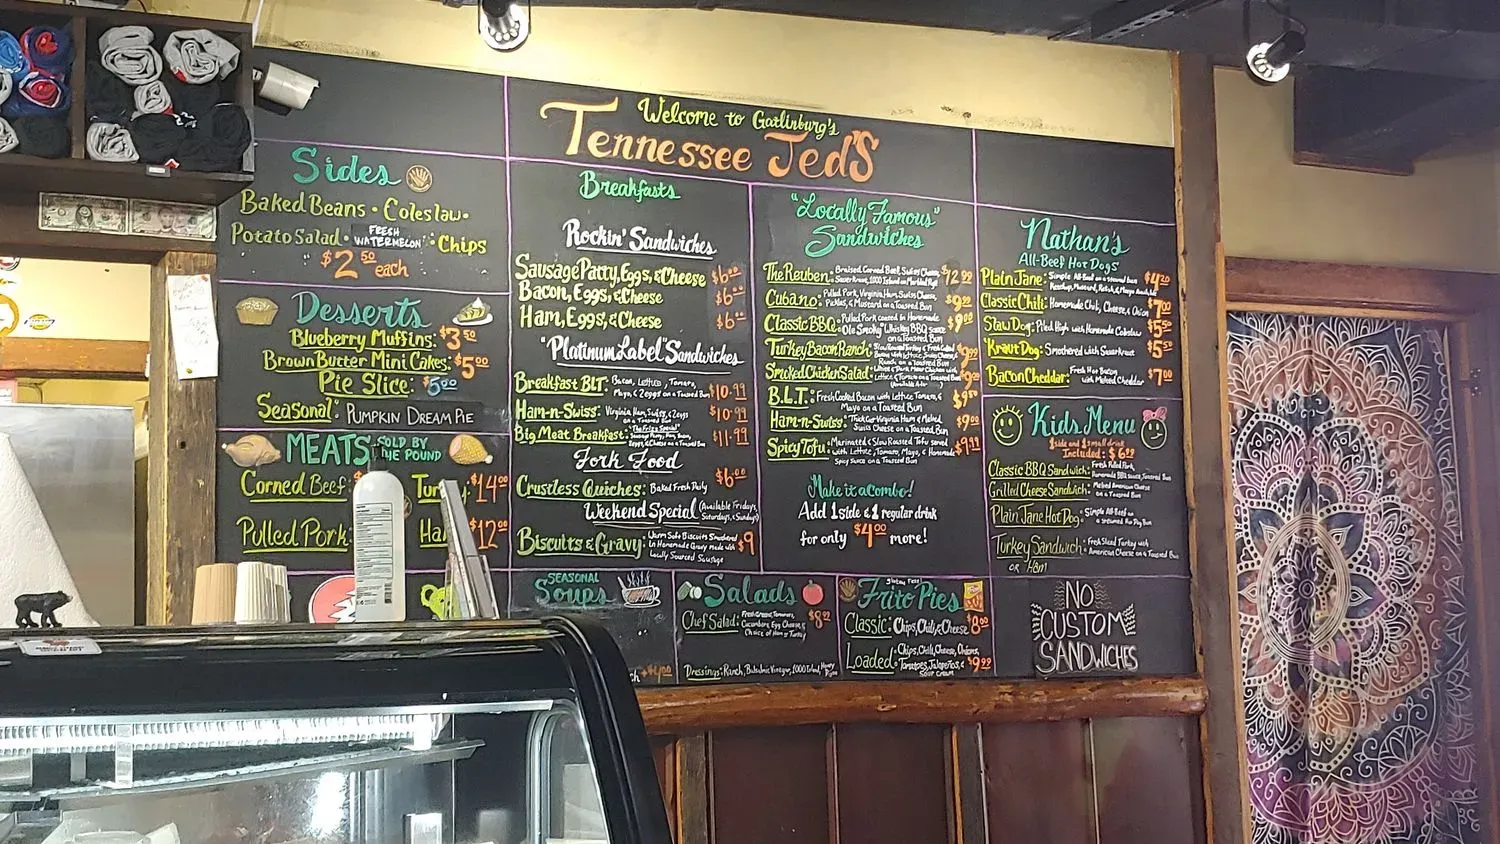 Welcome to Gatlinburg's
Tennessee Jed's
Sides
Baked Beans • Coleslaw •
Potato Salad • Fresh Watermelon • Chips
$2.50 each
Desserts
Blueberry Muffins: $3.50
Brown Butter Mini Cakes: $5.00
Pie Slice: $5.00
Seasonal: Pumpkin Dream Pie
MEATS SOLD BY THE POUND
Corned Beef: $14.00
Pulled Pork: $12.00
Breakfasts
Rockin' Sandwiches
Sausage Patty, Eggs, & Cheese $6.00
Bacon, Eggs, & Cheese $6.00
Ham, Eggs, & Cheese $6.00
"Platinum Label" Sandwiches
Breakfast BLT: Bacon, Lettuce, Tomato, $10.99
Mayo, & 2 eggs on a Toasted Bun
Ham-n-Swiss: Virginia Ham, Swiss, & 2 eggs $10.99
on a Toasted Bun
Big Meat Breakfast: $11.99
Eggs, & Cheese on a Toasted Bun
Fork Food
Crustless Quiches: Baked Fresh Daily $6.00
Weekend Special (Available Fridays,
Saturdays, & Sundays)
Biscuits & Gravy: Warm Soft Biscuits Smothered $9
in Homemade Gravy made with
Locally Sourced Sausage
"Locally Famous"
Sandwiches
The Reuben: Braised Corned Beef, Swiss Cheese, $12.99
Sauerkraut, 1000 Island on Marbled Rye
Cubano: Pulled Pork, Virginia Ham, Swiss Cheese, $9.99
Pickles, & Mustard on a Toasted Bun
Classic BBQ: Pulled Pork coated in Homemade $9.00
Ole Smoky Whiskey BBQ sauce
on a Toasted Bun
Turkey Bacon Ranch: Slow Roasted Turkey & Fresh Cooked $9.99
Bacon with Lettuce, Swiss Cheese, &
Ranch on a Toasted Bun
Smoked Chicken Salad: White & Dark Meat Chicken with
Lettuce & Tomato on a Toasted Bun
B.L.T.: Fresh Cooked Bacon with Lettuce, Tomato, & $9.50
Mayo on a Toasted Bun
Ham-n-Swiss: Thick Cut Virginia Ham & Melted $9.00
Swiss Cheese on a Toasted Bun
Spicy Tofu: Marinated & Slow Roasted Tofu served $9.99
with Lettuce, Tomato, Mayo, & Homemade
Spicy Sauce on a Toasted Bun
Make it a Combo!
Add 1 side & 1 regular drink
for only $4.00 more!
Nathan's
All-Beef Hot Dogs
Plain Jane: Simple All-Beef on a steamed bun $4.20
Ketchup, Mustard, Relish, & Mayo Available
Classic Chili: Homemade Chili, Cheese, & Onion $7.00
Slaw Dog: Piled High with Homemade Coleslaw $5.50
'Kraut Dog: Smothered with Sauerkraut $5.50
Bacon Cheddar: Fresh Hot Bacon $7.00
with Melted Cheddar
Kids Menu
1 side and 1 small drink
Included: $6.99
Classic BBQ Sandwich: Fresh Pulled Pork,
Homemade BBQ Sauce, Toasted Bun
Grilled Cheese Sandwich: Melted American Cheese
on a Toasted Bun
Plain Jane Hot Dog: Simple All-Beef on
a Steamed Hot Dog Bun
Turkey Sandwich: Fresh Sliced Turkey with
or Ham American Cheese on a Toasted Bun
SEASONAL
Soups
Salads
Chef Salad: Fresh Greens, Tomatoes, $8.99
Cucumbers, Egg, Cheese, &
Choice of Ham or Turkey
Dressings: Ranch, Balsamic Vinegar, 1000 Island, Honey
Gluten Free!
Frito Pies
Classic: Chips, Chili, & Cheese $8.00
Loaded: Chips, Chili, Cheese, Onions, $9.99
Tomatoes, Jalapeños, &
Sour Cream
NO
CUSTOM
SANDWICHES